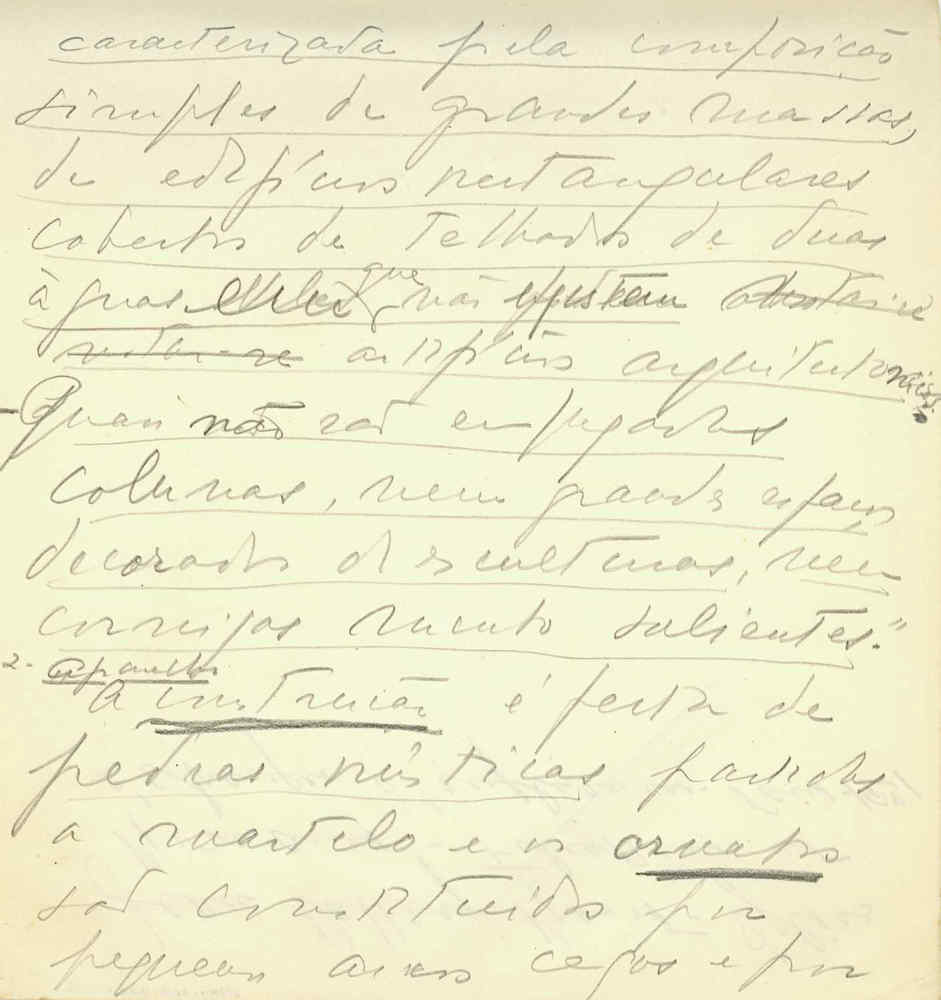 caracterizada pela composição
simples de grandes massas,
de edifícios rectangulares
cobertos de Telhados de duas
águas que não
artifícios arquitectonicos.
não são empregadas
colunas, nem grandes espaços
decorados d'esculturas, nem
cornijas muito salientes."
2. aparelho
A construção é feita de
pedras rústicas partidas
a martelo e os ornatos
são constituidos por
pequenos arcos cegos e por